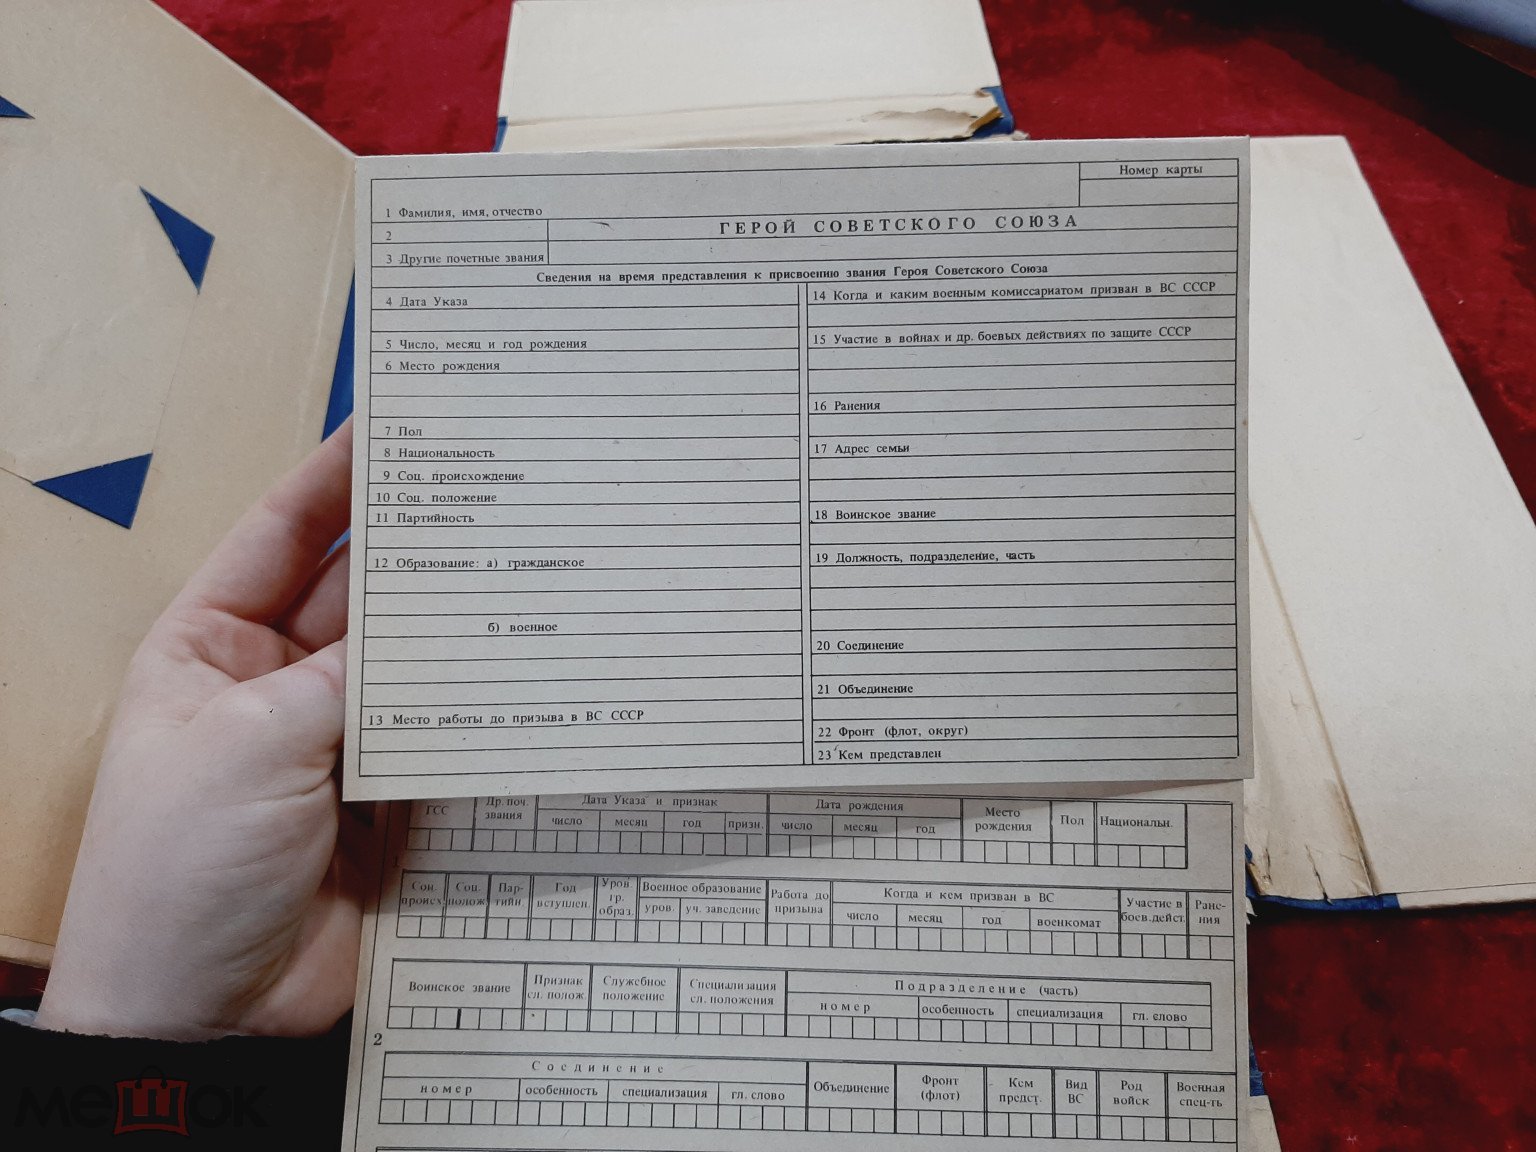 Номер карты
1 Фамилия, имя, отчество
2
ГЕРОЙ СОВЕТСКОГО СОЮЗА
3 Другие почетные звания
Сведения на время представления к присвоению звания Героя Советского Союза
4 Дата Указа
5 Число, месяц и год рождения
6 Место рождения
7 Пол
8 Национальность
9 Соц. происхождение
10 Соц. положение
11 Партийность
12 Образование: а) гражданское
б) военное
13 Место работы до призыва в ВС СССР
14 Когда и каким военным комиссариатом призван в ВС СССР
15 Участие в войнах и др. боевых действиях по защите СССР
16 Ранения
17 Адрес семьи
18 Воинское звание
19 Должность, подразделение, часть
20 Соединение
21 Объединение
22 Фронт (флот, округ)
23 Кем представлен
ГСС
Др. поч.
звания
Дата Указа и признак
число месяц год призн.
Дата рождения
число месяц год
Место
рождения
Пол
Национальн.
1
Соц.
происх.
Соц.
полож.
Пар-
тийн.
Год
вступлен.
Уров.
гр.
образ.
Военное образование
уров. уч. заведение
Работа до
призыва
Когда и кем призван в ВС
число месяц год военкомат
Участие в
боев.дейст.
Ране-
ния
Воинское звание
Признак
сл. полож.
Служебное
положение
Специализация
сл. положения
Подразделение (часть)
номер особенность специализация гл. слово
2
Соединение
номер особенность специализация гл. слово
Объединение
Фронт
(флот)
Кем
предст.
Вид
ВС
Род
войск
Военная
спец-ть
мешок